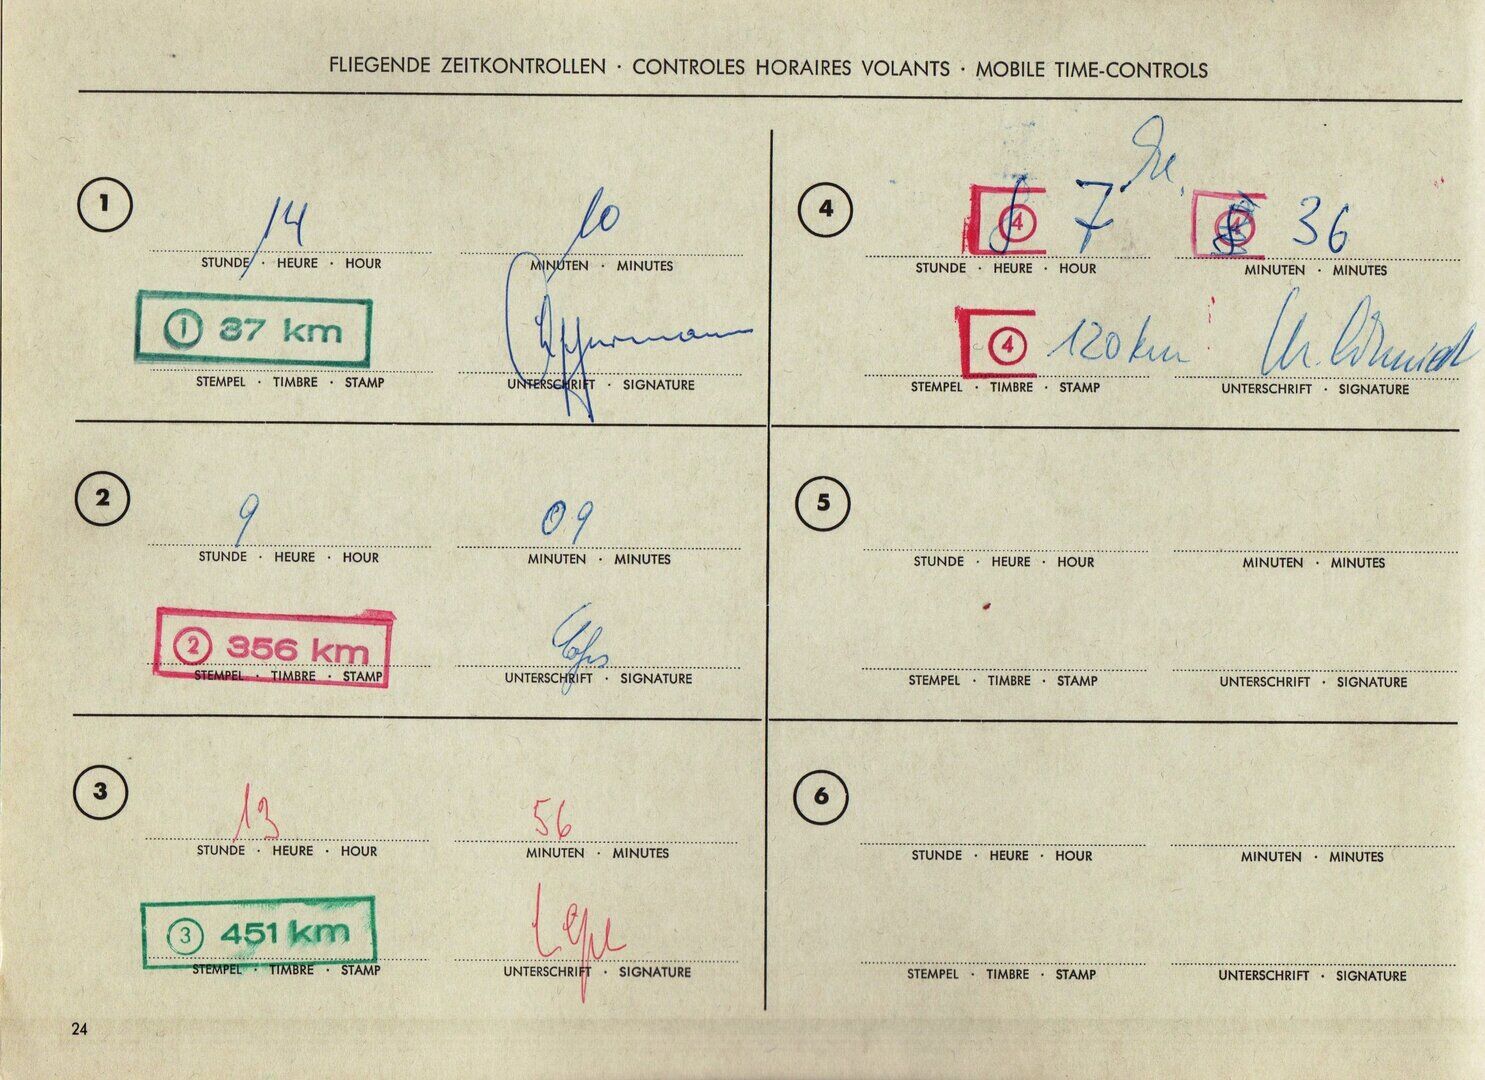 FLIEGENDE ZEITKONTROLLEN · CONTROLES HORAIRES VOLANTS · MOBILE TIME-CONTROLS
1
14 10
STUNDE · HEURE · HOUR MINUTEN · MINUTES
1 37 km
STEMPEL · TIMBRE · STAMP UNTERSCHRIFT · SIGNATURE
2
9 09
STUNDE · HEURE · HOUR MINUTEN · MINUTES
2 356 km
STEMPEL · TIMBRE · STAMP UNTERSCHRIFT · SIGNATURE
3
13 56
STUNDE · HEURE · HOUR MINUTEN · MINUTES
3 451 km
STEMPEL · TIMBRE · STAMP UNTERSCHRIFT · SIGNATURE
24
4
4 7 4 36
STUNDE · HEURE · HOUR MINUTEN · MINUTES
4 120 km
STEMPEL · TIMBRE · STAMP UNTERSCHRIFT · SIGNATURE
5
STUNDE · HEURE · HOUR MINUTEN · MINUTES
STEMPEL · TIMBRE · STAMP UNTERSCHRIFT · SIGNATURE
6
STUNDE · HEURE · HOUR MINUTEN · MINUTES
STEMPEL · TIMBRE · STAMP UNTERSCHRIFT · SIGNATURE